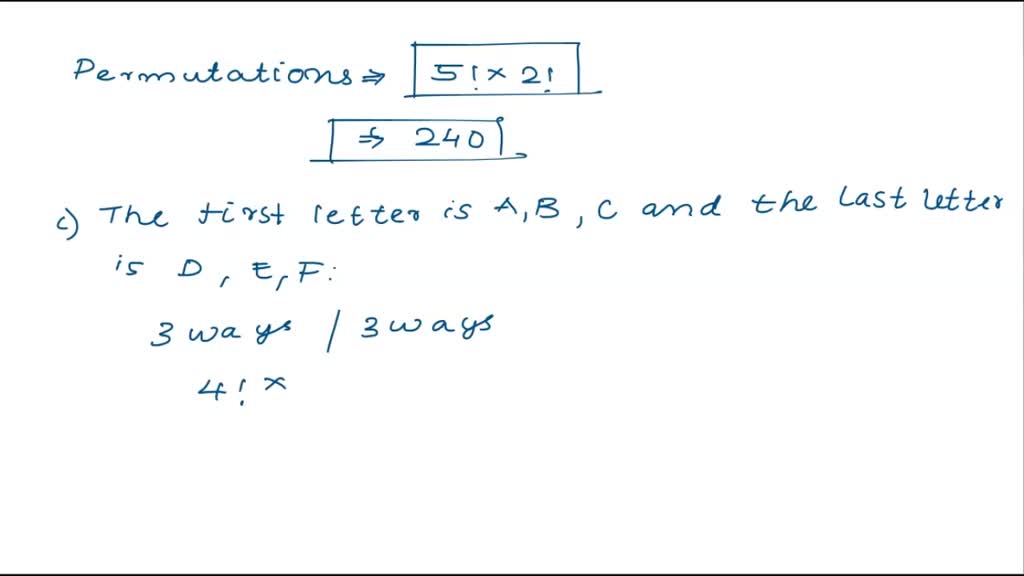 Permutations ⇒ 5! × 2!
⇒ 240
c) The first letter is A, B, C and the last letter
is D, E, F:
3 ways / 3 ways
4! ×